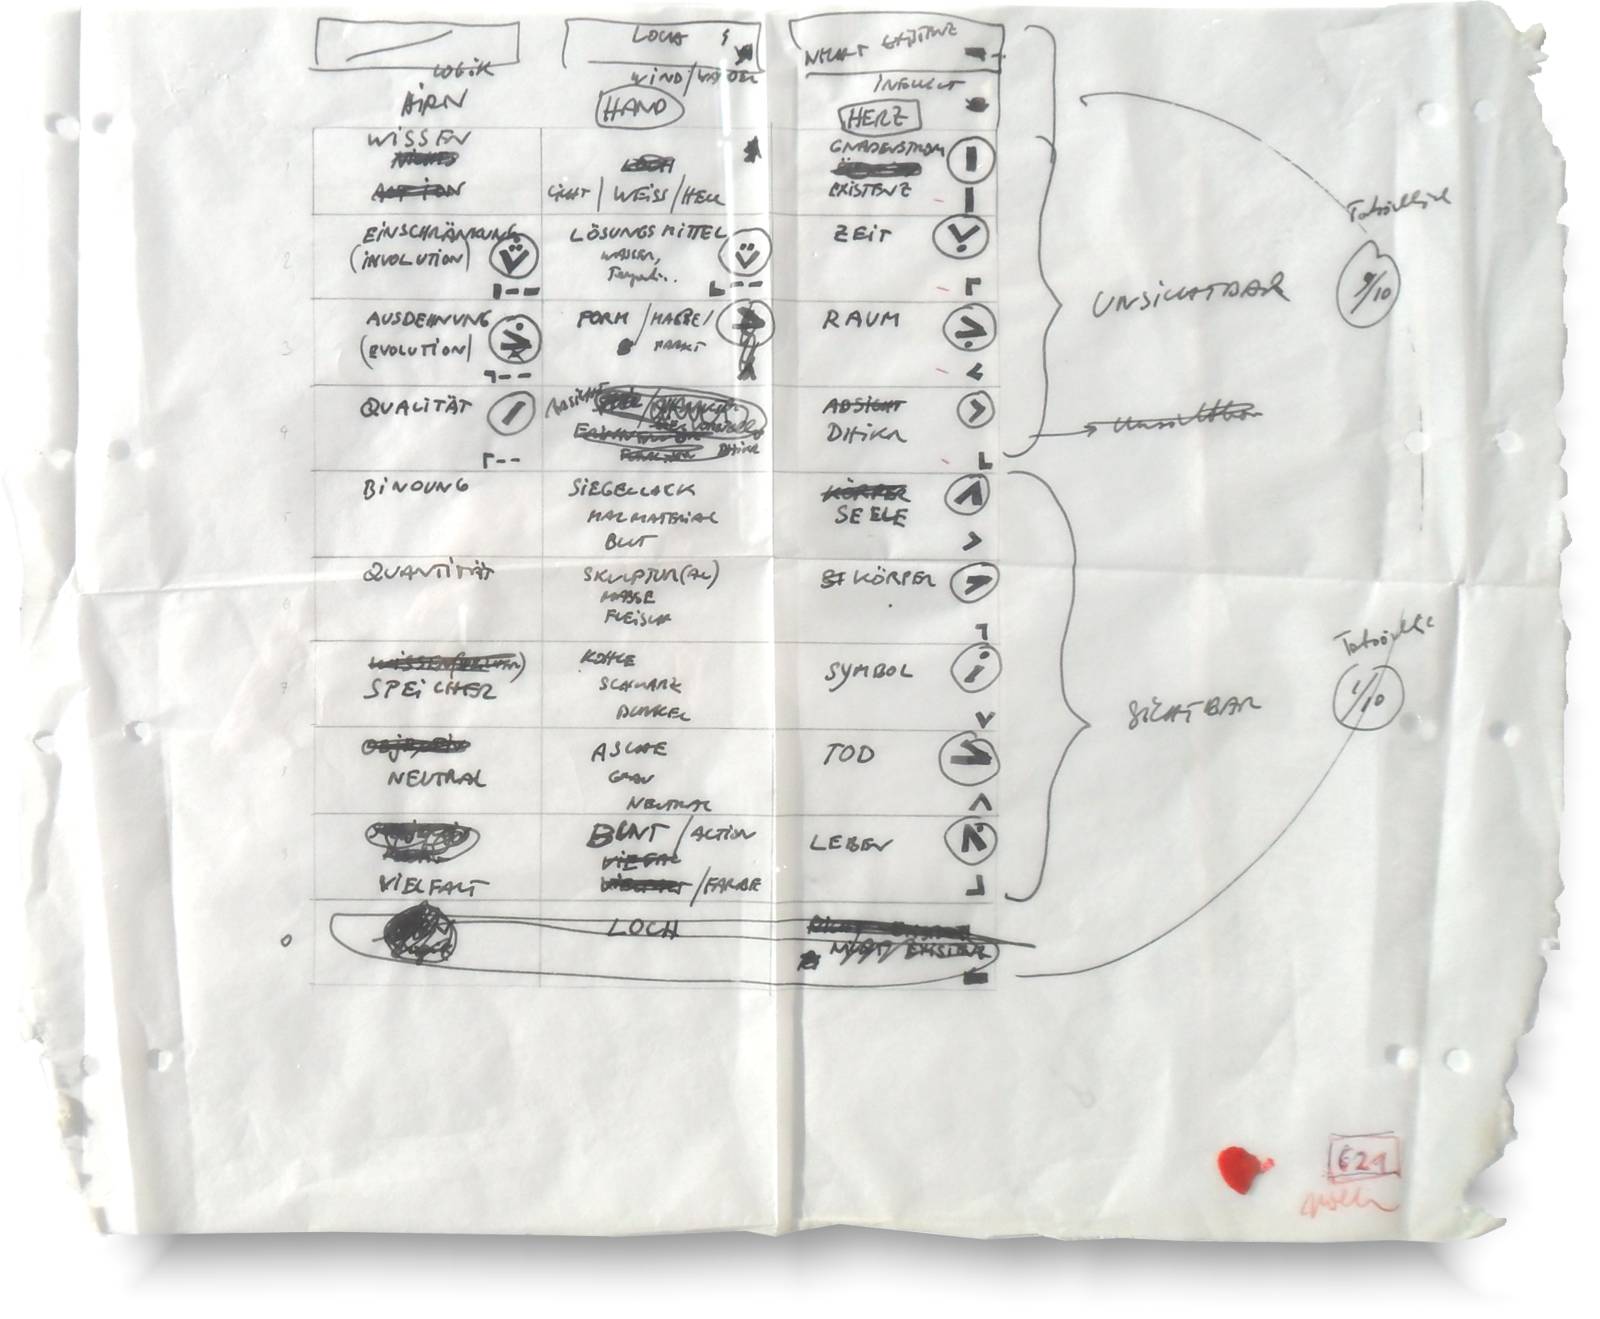 LOCH
NICHT EXISTENZ
LOGIK
WIND/
HIRN
HAND
HERZ
WISSEN
GNADENSTROM
LICHT / WEISS / HELL
EXISTENZ
EINSCHRÄNKUNG
(INVOLUTION)
LÖSUNGSMITTEL
WASSER,
ZEIT
2
AUSDEHNUNG
(EVOLUTION)
FORM / MASSE /
RAUM
3
QUALITÄT
ABSICHT
ABSICHT
DHIKR
DHIKR
4
UNSICHTBAR
9/10
BINDUNG
SIEGELLACK
MALMATERIAL
BLUT
KÖRPER
SEELE
QUANTITÄT
SKULPTUR(AL)
MASSE
FLEISCH
KÖRPER
SPEICHER
KOHLE
SCHWARZ
DUNKEL
SYMBOL
7
SICHTBAR
1/10
NEUTRAL
ASCHE
GRAU
NEUTRAL
TOD
VIELFALT
BUNT / ACTION
VIELFALT / FARBE
LEBEN
0
LOCH
NICHT EXISTENZ
621